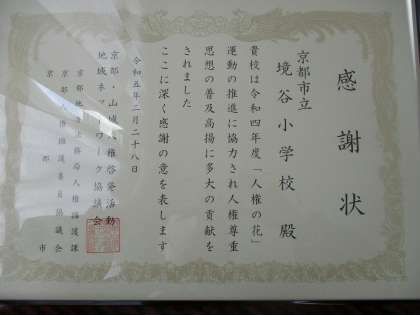 感謝状
京都市立
境谷小学校 殿
貴校は令和四年度「人権の花」
運動の推進に協力され人権尊重
思想の普及高揚に多大の貢献を
されました
ここに深く感謝の意を表します
令和五年二月二十八日
京都・山城人権啓発活動
地域ネットワーク協議会
京都地方法務局人権擁護課
京都人権擁護委員協議会
京都市